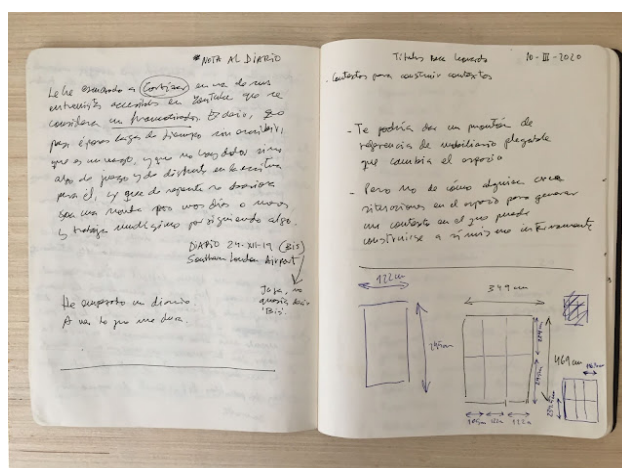 * NOTA AL DIARIO
Le he escuchado a Cortázar en una de sus
entrevistas accesibles en Youtube que se
considera un
Es decir, que
pasa épocas largas de tiempo sin escribir,
que es un vago, y que no hay dolor sino
algo de juego y de disfrute en la escritura
para él, y que de repente se
por unos días o meses
y trabaja muchísimo persiguiendo algo.
DIARIO 24-XII-19 (Bis)
Southern London Airport
Jaja, no
quería decir
'Bis'.
He empezado un diario
A ver lo que me dura.
Títulos para Leonardo 10-III-2020
- Contextos para construir contextos
- Te podría dar un montón de
referencia de mobiliario plegable
que cambia el espacio
- Pero no de cómo alguien crea
situaciones en el espacio para generar
un contexto en el que puede
construirse a sí mismo internamente
122cm
349cm
245cm
469cm